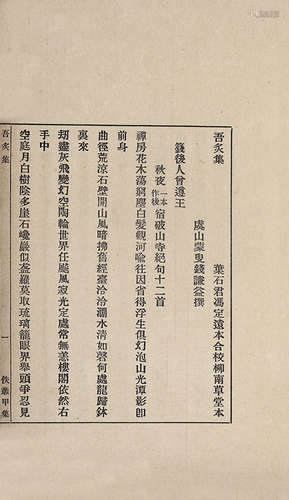 吾炙集
葉石君馮定遠本合校柳南草堂本
虞山蒙叟錢謙益撰
籛後人曾遵王
秋夜一本作後宿破山寺絕句十二首
禪房花木蕩窮塵白髮觀河喻往因省得浮生俱幻泡山光潭影即
前身
曲徑荒涼石壁開山風暗拂舊經臺洽洽㵎水清如磬何處龍歸鉢
裏來
刼盡灰飛變幻空陶輪世界任颷風寂光定處常無恙樓閣依然右
手中
空庭月白樹陰多崖石巉巖似盎羅莫取琉璃籠眼界舉頭爭忍見
吾炙集
一
佚叢甲集